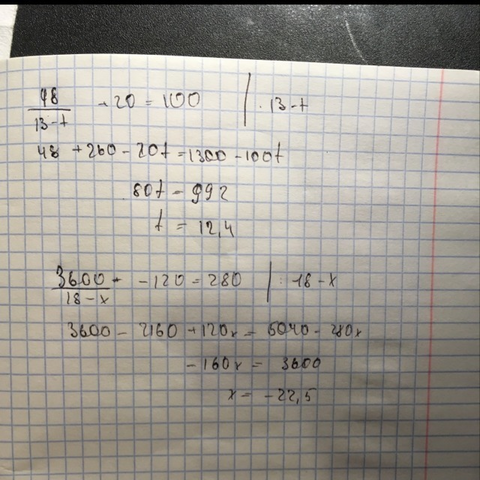 48/(13-t) +20 = 100 | · 13-t
48 + 260 - 20t = 1300 - 100t
80t = 992
t = 12,4
3600/(18-x) - 120 = 280 | · 18-x
3600 - 2160 + 120x = 5040 - 280x
-160x = 3600
x = -22,5